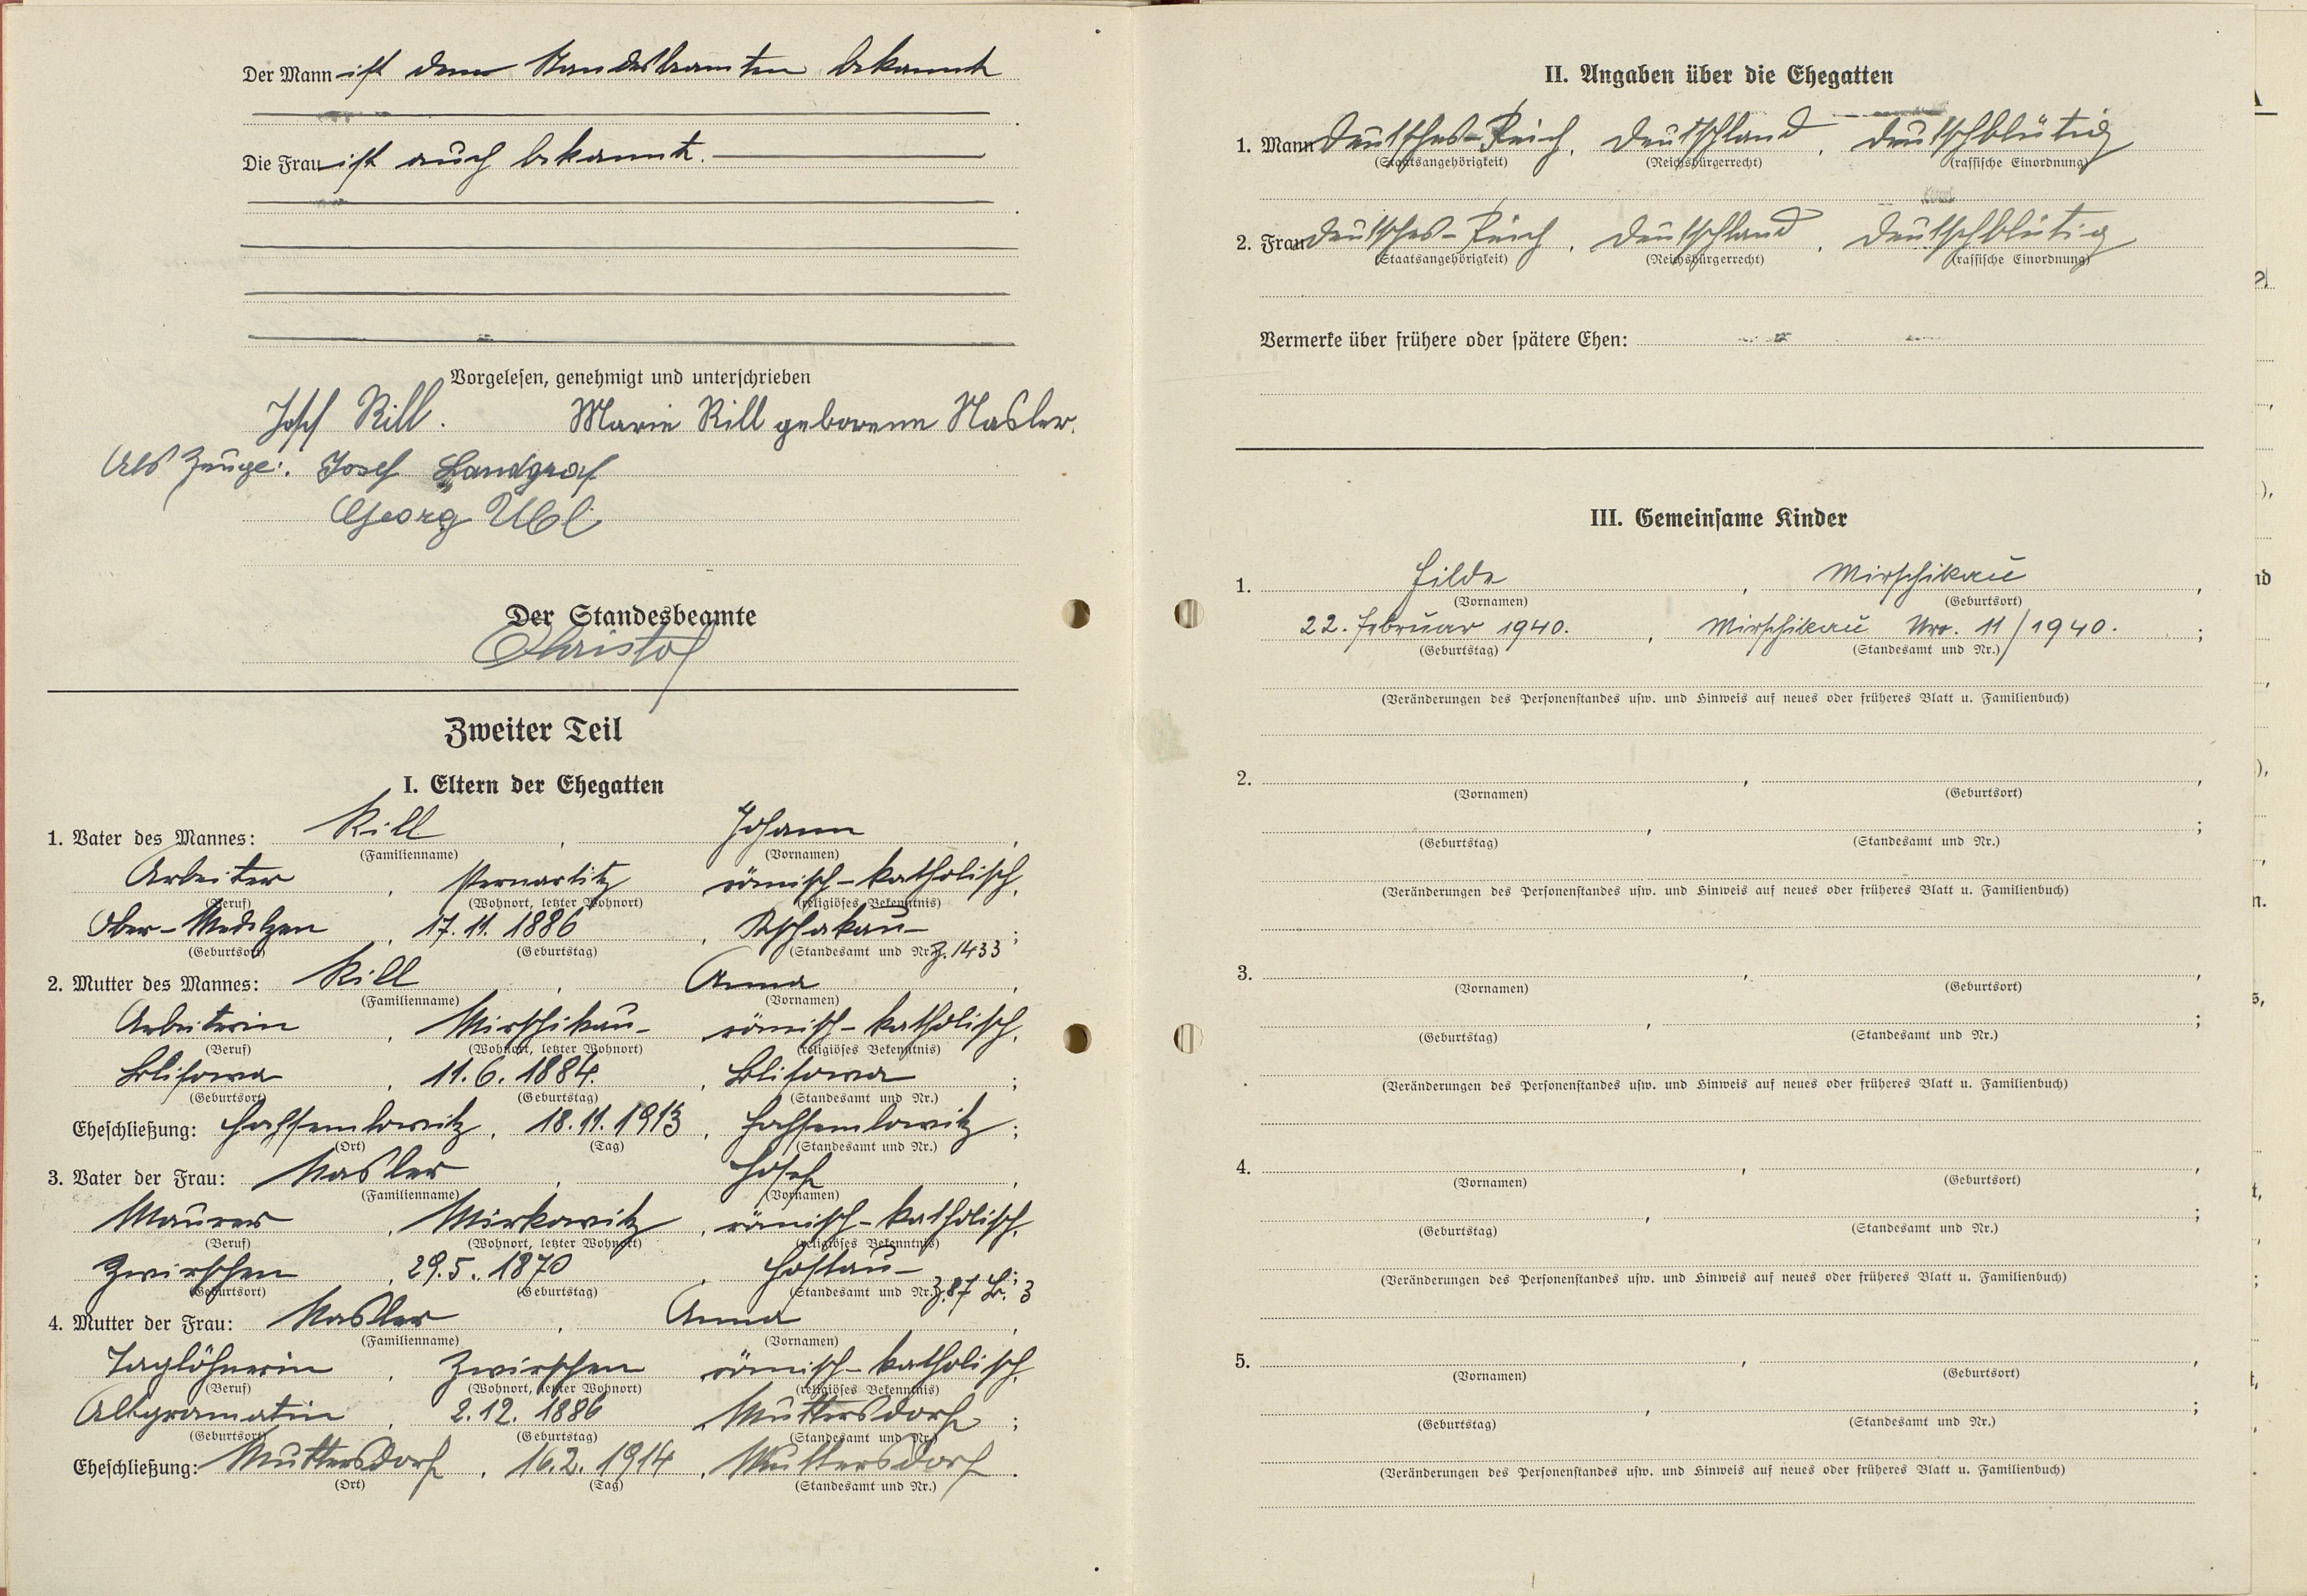 Der Mann ist dem Standesbeamten bekannt
Die Frau ist auch bekannt.
Vorgelesen, genehmigt und unterschrieben
Josef Rill. Marie Rill geborene Nasler.
Als Zeuge: Josef Landgraf
Georg Ubl
Der Standesbeamte
Christof
Zweiter Teil
I. Eltern der Ehegatten
1. Vater des Mannes: Rill, Johann,
(Familienname) (Vornamen)
Arbeiter, Pernartitz römisch-katholisch,
(Beruf) (Wohnort, letzter Wohnort) (religiöses Bekenntnis)
Ober-Medelzen, 17. 11. 1886, Rschakau- ;
(Geburtsort) (Geburtstag) (Standesamt und Nr.) Z. 1433
2. Mutter des Mannes: Rill, Anna,
(Familienname) (Vornamen)
Arbeiterin, Mirschikau- römisch-katholisch,
(Beruf) (Wohnort, letzter Wohnort) (religiöses Bekenntnis)
Blisowa, 11. 6. 1884., Blisowa ;
(Geburtsort) (Geburtstag) (Standesamt und Nr.)
Eheschließung: Hochsemlowitz, 18. 11. 1913, Hochsemlowitz ;
(Ort) (Tag) (Standesamt und Nr.)
3. Vater der Frau: Nasler, Josef,
(Familienname) (Vornamen)
Maurer, Mirkowitz, römisch-katholisch,
(Beruf) (Wohnort, letzter Wohnort) (religiöses Bekenntnis)
Zwirschen, 29. 5. 1870, Hostau- ;
(Geburtsort) (Geburtstag) (Standesamt und Nr.) Z. 87 B. 3
4. Mutter der Frau: Nasler, Anna,
(Familienname) (Vornamen)
Taglöhnerin, Zwirschen römisch-katholisch,
(Beruf) (Wohnort, letzter Wohnort) (religiöses Bekenntnis)
Altgramatin, 2. 12. 1886, Muttersdorf ;
(Geburtsort) (Geburtstag) (Standesamt und Nr.)
Eheschließung: Muttersdorf, 16. 2. 1914, Muttersdorf.
(Ort) (Tag) (Standesamt und Nr.)
II. Angaben über die Ehegatten
1. Mann Deutsches-Reich, Deutschland, deutschblütig
(Staatsangehörigkeit) (Reichsbürgerrecht) (rassische Einordnung)
2. Frau Deutsches-Reich, Deutschland, deutschblütig
(Staatsangehörigkeit) (Reichsbürgerrecht) (rassische Einordnung)
Vermerke über frühere oder spätere Ehen:
III. Gemeinsame Kinder
1. Hilde, Mirschikau,
(Vornamen) (Geburtsort)
22. Februar 1940., Mirschikau Nro. 11/1940. ;
(Geburtstag) (Standesamt und Nr.)
(Veränderungen des Personenstandes usw. und Hinweis auf neues oder früheres Blatt u. Familienbuch)
2. , ,
(Vornamen) (Geburtsort)
, ;
(Geburtstag) (Standesamt und Nr.)
(Veränderungen des Personenstandes usw. und Hinweis auf neues oder früheres Blatt u. Familienbuch)
3. , ,
(Vornamen) (Geburtsort)
, ;
(Geburtstag) (Standesamt und Nr.)
(Veränderungen des Personenstandes usw. und Hinweis auf neues oder früheres Blatt u. Familienbuch)
4. , ,
(Vornamen) (Geburtsort)
, ;
(Geburtstag) (Standesamt und Nr.)
(Veränderungen des Personenstandes usw. und Hinweis auf neues oder früheres Blatt u. Familienbuch)
5. , ,
(Vornamen) (Geburtsort)
, ;
(Geburtstag) (Standesamt und Nr.)
(Veränderungen des Personenstandes usw. und Hinweis auf neues oder früheres Blatt u. Familienbuch)